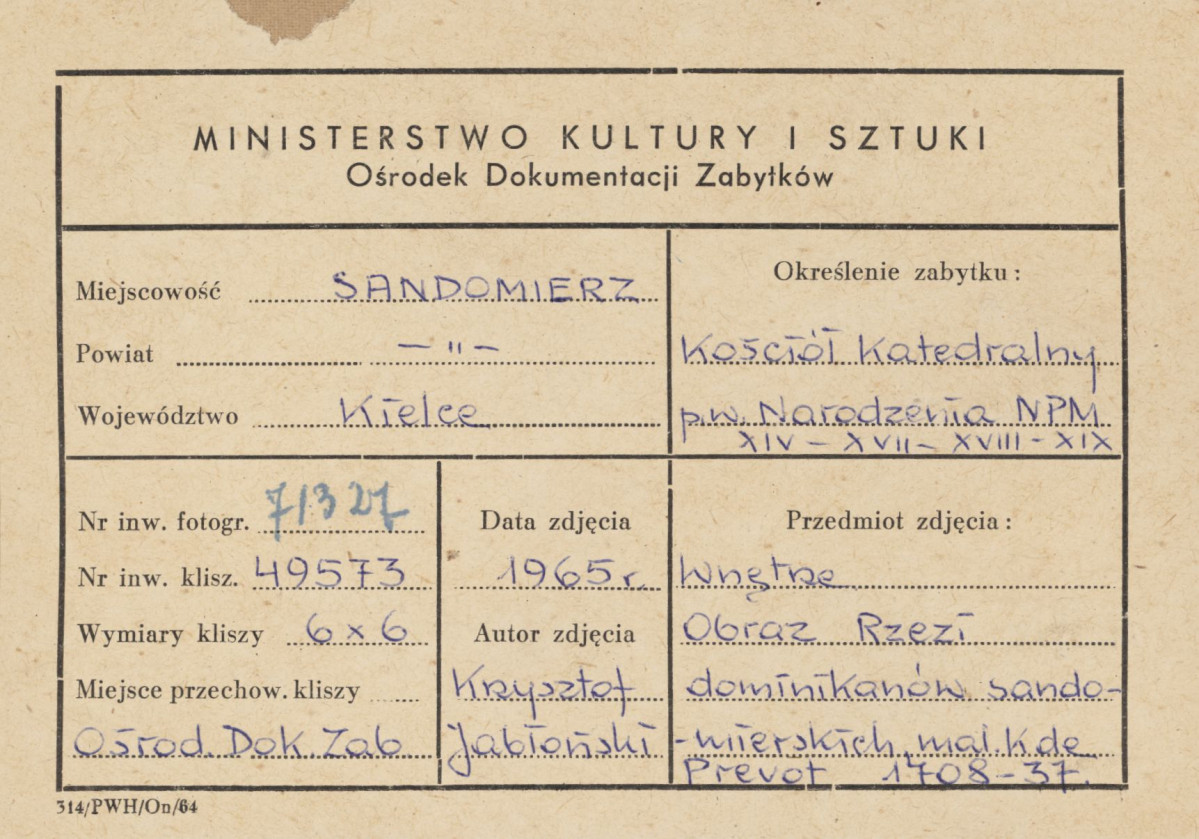 MINISTERSTWO KULTURY I SZTUKI
Ośrodek Dokumentacji Zabytków
Miejscowość SANDOMIERZ
Powiat — " —
Województwo Kielce
Określenie zabytku:
Kościół Katedralny
p.w. Narodzenia NPM
XIV – XVII – XVIII - XIX
Nr inw. fotogr. 71327
Nr inw. klisz. 49573
Wymiary kliszy 6 x 6
Miejsce przechow. kliszy
Ośrod. Dok. Zab
Data zdjęcia
1965 r.
Autor zdjęcia
Krzysztof
Jabłoński
Przedmiot zdjęcia:
Wnętrze
Obraz Rzezi
dominikanów sando-
-mierskich, mal. K de
Prevot 1708-37.
314/PWH/On/64